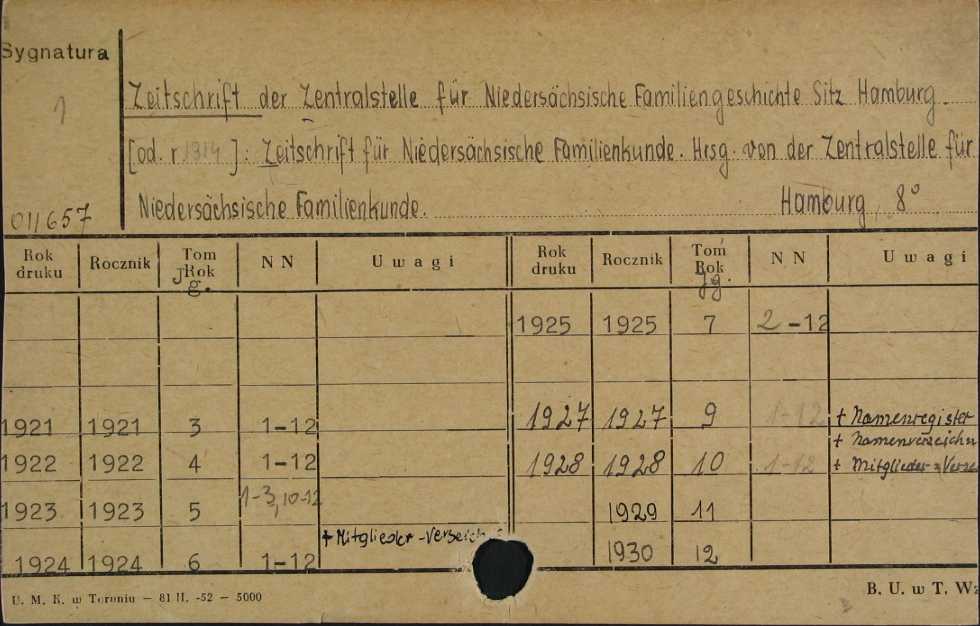 Sygnatura
1
Zeitschrift der Zentralstelle für Niedersächsische Familiengeschichte Sitz Hamburg.
[od. r. ]: Zeitschrift für Niedersächsische Familienkunde. Hrsg. von der Zentralstelle für
Niedersächsische Familienkunde. Hamburg, 8°
011657
Rok druku Rocznik Tom Rok Jg. N N Uwagi Rok druku Rocznik Tom Rok Jg. N N Uwagi
1925 1925 7 2-12
1921 1921 3 1-12 1927 1927 9 1-12 + Namenregister
+
1922 1922 4 1-12 1928 1928 10 1-12 +
1923 1923 5 1-3, 10-12 1929 11
1924 1924 6 1-12 + 1930 12
U. M. K. w Toruniu — 81 II. -52 — 5000 B. U. w T.